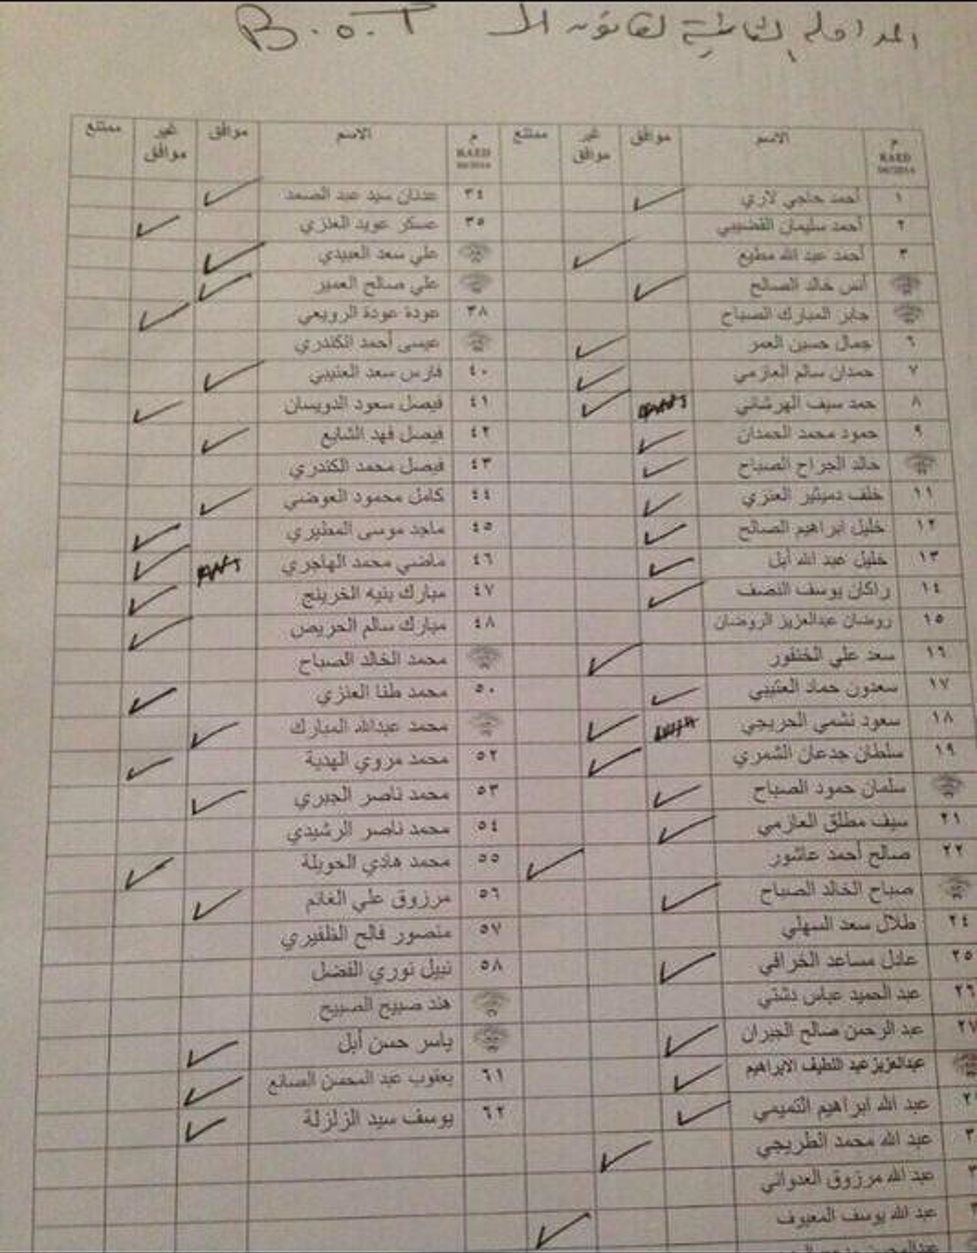 المداولة الثانية لقانون الـ B.O.T
م RAED الاسم موافق غير موافق ممتنع
١ أحمد حاجي لاري ✓
٢ أحمد سليمان القضيبي
٣ أحمد عبد الله مطيع ✓
أنس خالد الصالح ✓
جابر المبارك الصباح
٦ جمال حسين العمر ✓
٧ حمدان سالم العازمي ✓
٨ حمد سيف الهرشاني ✓
٩ حمود محمد الحمدان ✓
خالد الجراح الصباح ✓
١١ خلف دميثير العنزي ✓
١٢ خليل ابراهيم الصالح ✓
١٣ خليل عبد الله أبل ✓
١٤ راكان يوسف النصف ✓
١٥ روضان عبدالعزيز الروضان
١٦ سعد علي الخنفور ✓
١٧ سعدون حماد العتيبي ✓
١٨ سعود نشمي الحريجي ✓
١٩ سلطان جدعان الشمري ✓
سلمان حمود الصباح ✓
٢١ سيف مطلق العازمي ✓
٢٢ صالح أحمد عاشور ✓
صباح الخالد الصباح ✓
٢٤ طلال سعد السهلي
٢٥ عادل مساعد الخرافي ✓
٢٦ عبد الحميد عباس دشتي
٢٧ عبد الرحمن صالح الجيران ✓
عبدالعزيز عبد اللطيف الابراهيم ✓
عبد الله ابراهيم التميمي ✓
عبد الله محمد الطريجي ✓
عبد الله مرزوق العدواني
عبد الله يوسف المعيوف ✓
م RAED الاسم موافق غير موافق ممتنع
٣٤ عدنان سيد عبد الصمد ✓
٣٥ عسكر عويد العنزي ✓
علي سعد العبيدي ✓
علي صالح العمير ✓
٣٨ عودة عودة الرويعي ✓
عيسى أحمد الكندري
٤٠ فارس سعد العتيبي ✓
٤١ فيصل سعود الدويسان ✓
٤٢ فيصل فهد الشايع ✓
٤٣ فيصل محمد الكندري
٤٤ كامل محمود العوضي ✓
٤٥ ماجد موسى المطيري ✓
٤٦ ماضي محمد الهاجري ✓
٤٧ مبارك بنيه الخرينج ✓
٤٨ مبارك سالم الحريص ✓
محمد الخالد الصباح
٥٠ محمد طنا العنزي ✓
محمد عبدالله المبارك ✓
٥٢ محمد مروي الهدية ✓
٥٣ محمد ناصر الجبري ✓
٥٤ محمد ناصر الرشيدي
٥٥ محمد هادي الحويلة ✓
٥٦ مرزوق علي الغانم ✓
٥٧ منصور فالح الظفيري
٥٨ نبيل نوري الفضل
هند صبيح الصبيح
ياسر حسن أبل ✓
٦١ يعقوب عبد المحسن الصانع ✓
٦٢ يوسف سيد الزلزلة ✓